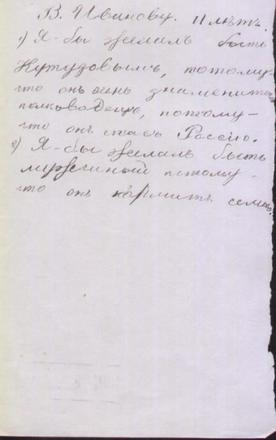 В. Иванову. 11 лѣтъ.
1) Я-бы желалъ быть
Кутузовымъ, потому
что онъ былъ знаменитъ
полководецъ, потому-
что онъ спасъ Россію.
2) Я-бы желалъ быть
мужчиной потому-
что онъ кормитъ семью.